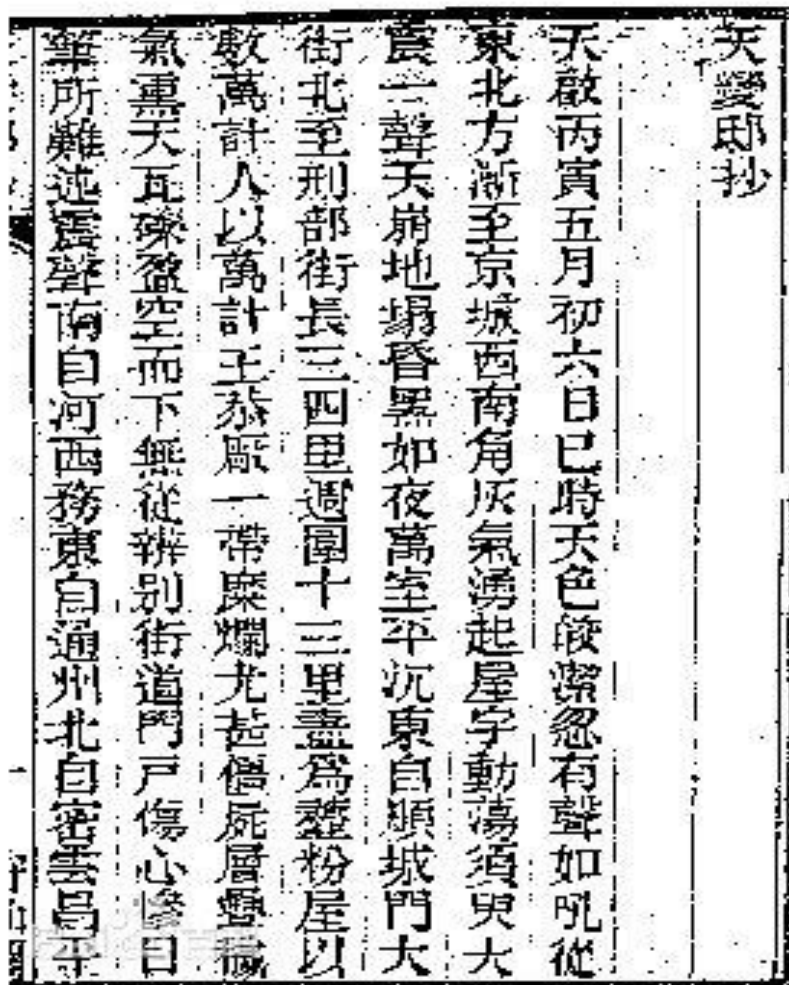 天變邸抄
天啟丙寅五月初六日巳時天色皎潔忽有聲如吼從
東北方漸至京城西南角灰氣湧起屋宇動蕩須臾大
震一聲天崩地塌昏黑如夜萬室平沉東自順城門大
街北至刑部街長三四里週圍十三里盡為虀粉屋以
數萬計人以萬計王恭厰一帶糜爛尤甚僵屍層疊穢
氣熏天瓦礫盈空而下無從辨別街道門戶傷心慘目
筆所難述震聲南自河西務東自通州北自密雲昌平